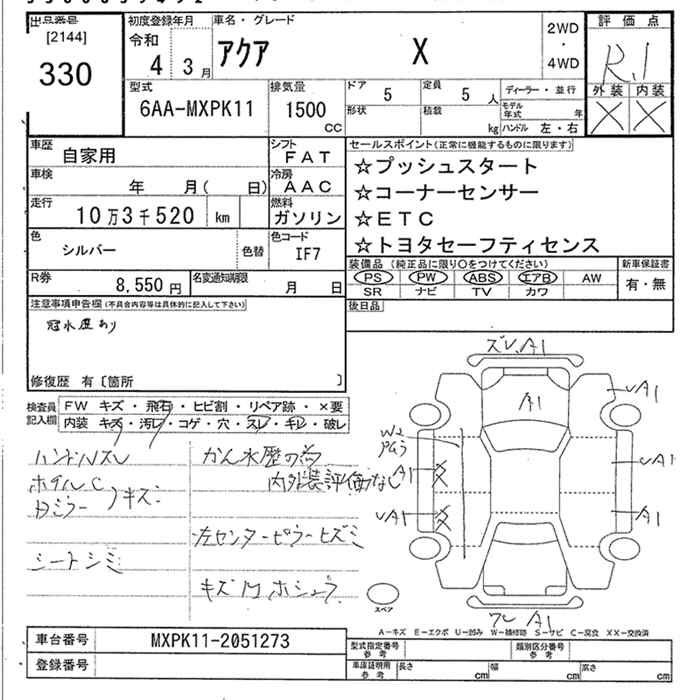 出品番号
[2144]
330
初度登録年月
令和
4 3月
車名・グレード
アクア X
2WD
・
4WD
評価点
R.1
外装 内装
× ×
型式
6AA-MXPK11
排気量
1500
CC
ドア 5
定員 5 人
形状
積載 kg
ディーラー・並行
モデル年式 年
ハンドル 左・右
車歴
自家用
シフト
FAT
車検
年 月( 日)
冷房
AAC
走行
10万3千520 km
燃料
ガソリン
色
シルバー
色替
色コード
IF7
R券
8,550円
名変通知期限
月 日
セールスポイント(正常に機能するものに限ります)
☆プッシュスタート
☆コーナーセンサー
☆ETC
☆トヨタセーフティセンス
装備品(純正品に限り○をつけてください)
PS PW ABS エアB AW
SR ナビ TV カワ
新車保証書
有・無
後日品
注意事項申告欄(不具合内容等は具体的に記入して下さい)
冠水歴あり
修復歴 有〔箇所 〕
検査員記入欄
FW キズ・飛石・ヒビ割・リペア跡・×要
内装 キズ・汚レ・コゲ・穴・スレ・キレ・破レ
ハンドルスレ
ホイルC
Dミラー キズ
シートシミ
かん水歴の為
内外装評価なし
左センターピラーヒズミ
キズ凹ホシュウ
ズレ,A1
A1
A1
A1
A1
A1
A1
A1
W2
スペア
A―キズ E―エクボ U―凹み W―補修跡 S―サビ C―腐食 XX―交換済
車台番号
MXPK11-2051273
登録番号
型式指定番号
参考
類別区分番号
参考
車庫証明用
参考
長さ cm
幅 cm
高さ cm